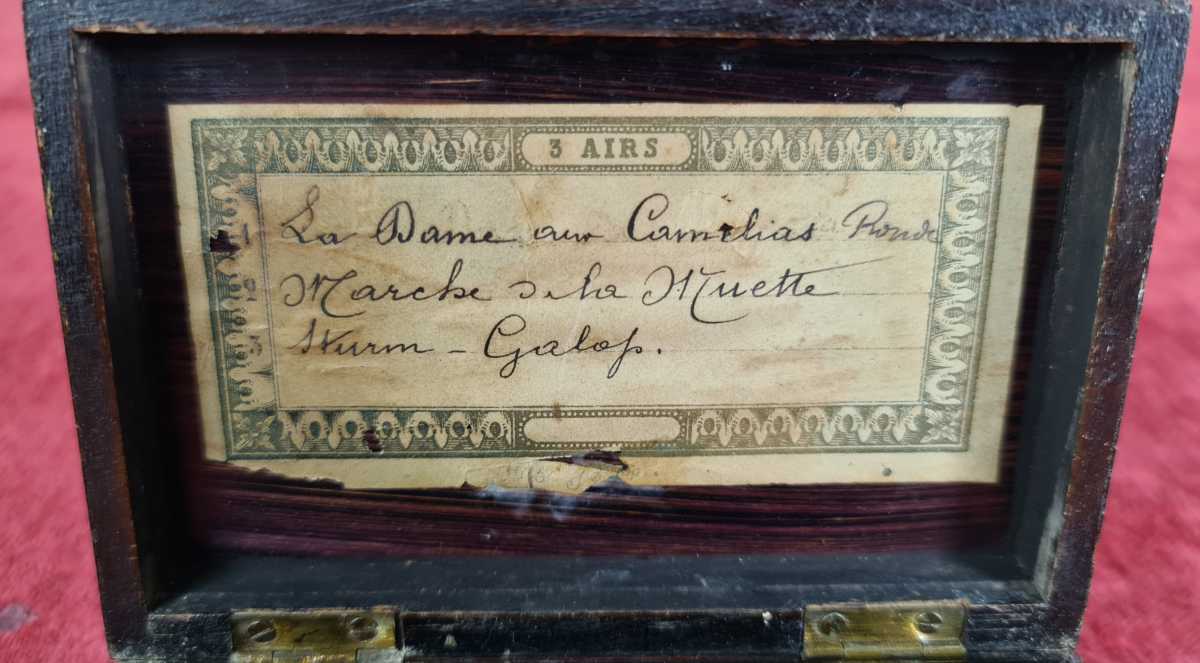 3 AIRS
1 La Dame aux Camelias Ronde
2 Marche de la Muette
3 Sturm - Galop.